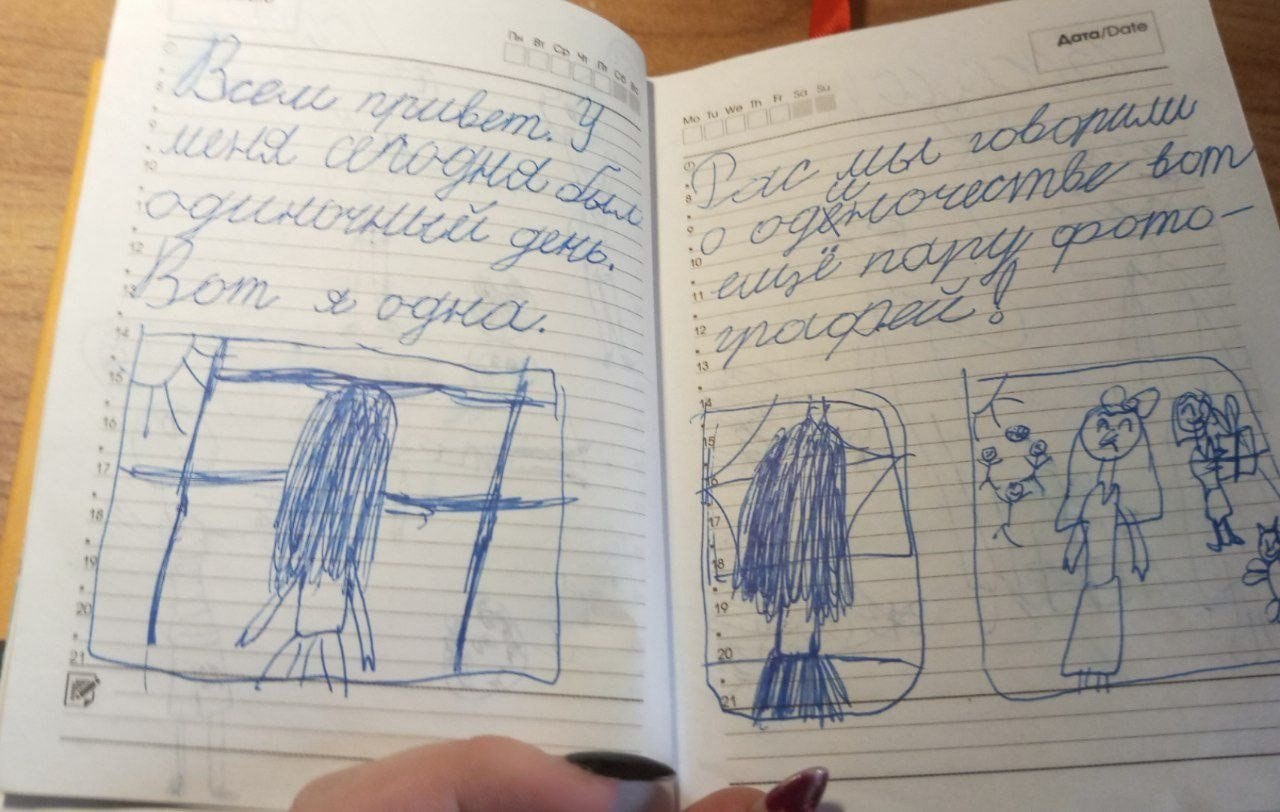 Пн Вт Ср Чт Пт Сб Вс
Всем привет. У
меня сегодня был
одиночный день.
Вот я одна.
8
9
10
11
12
13
14
15
16
17
18
19
20
21
Дата/Date
Mo Tu We Th Fr Sa Su
Рас мы говорили
о одиночестве вот
ещё пару фото-
графей!
8
9
10
11
12
13
14
15
16
17
18
19
20
21